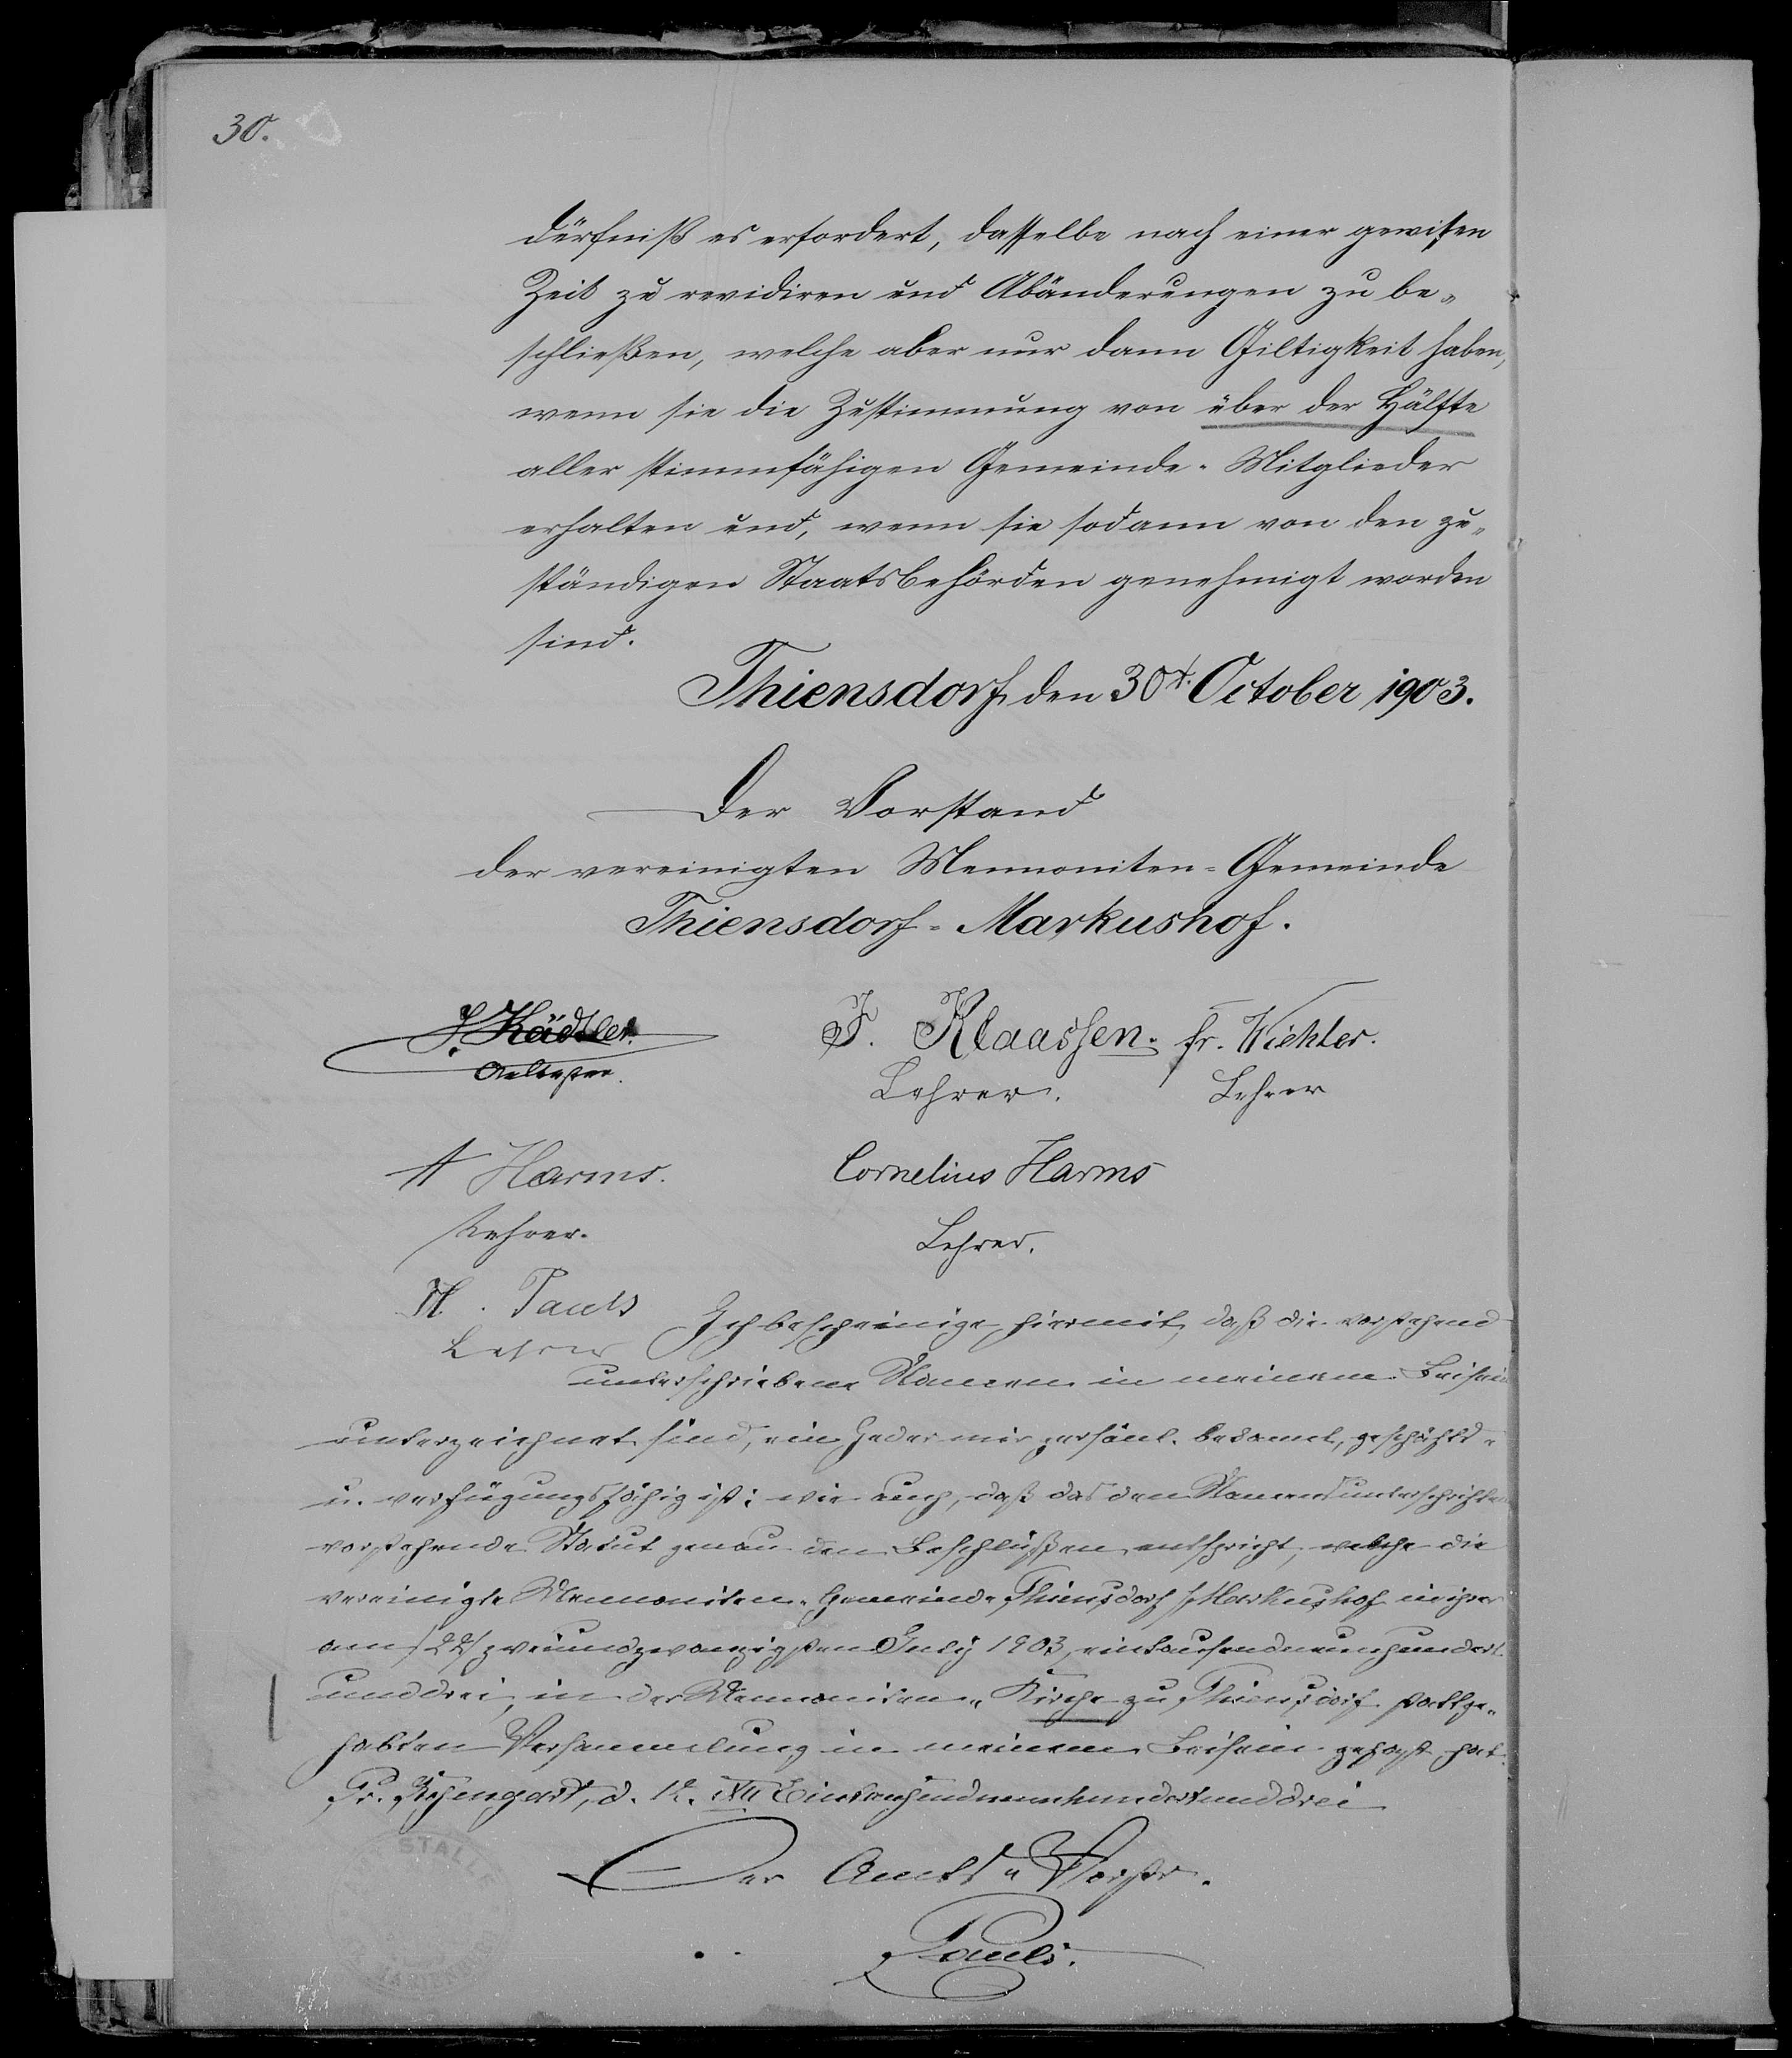 30.
dürfniß es erfordert, dasselbe nach einer gewissen
Zeit zu revidiren und Abänderungen zu be-
schließen, welche aber nur dann Giltigkeit haben,
wenn sie die Zustimmung von über der Hälfte
aller stimmfähigen Gemeinde-Mitglieder
erhalten und, wenn sie sodann von den zu-
ständigen Staatsbehörden genehmigt worden
sind.
Thiensdorf, den 30t. October 1903.
Der Vorstand
der vereinigten Mennoniten-Gemeinde
Thiensdorf-Markushof.
J. Kädtler. F. Klaassen. fr. Wiehler.
Aeltester. Lehrer. Lehrer
A Harms. Cornelius Harms
Lehrer. Lehrer.
H. Pauls
Lehrer
Ich bescheinige hiermit, daß die vorstehend
unterschriebene Namen in meinem Beisein
unterzeichnet sind, ein Jeder mir persönl. bekannt, geschäfts-
u. verfügungsfähig ist; wie auch, daß das den Namensunterschriften
vorstehende Statut genau den Beschlüßen entspricht, welche die
vereinigte Mennoniten-Gemeinde Thiensdorf Markushof in ihrer
am /22/ zweiundzwanzigsten July 1903, eintausendneunhundert
unddrei, in der Mennoniten-Kirche zu Thiensdorf stattge-
habten Versammlung in meinem Beisein gefasst hat.
Pr. Rosengart, d. XII Eintausendneunhundertunddrei
Der Amts-Vorstr.
Pauls.
STALLE